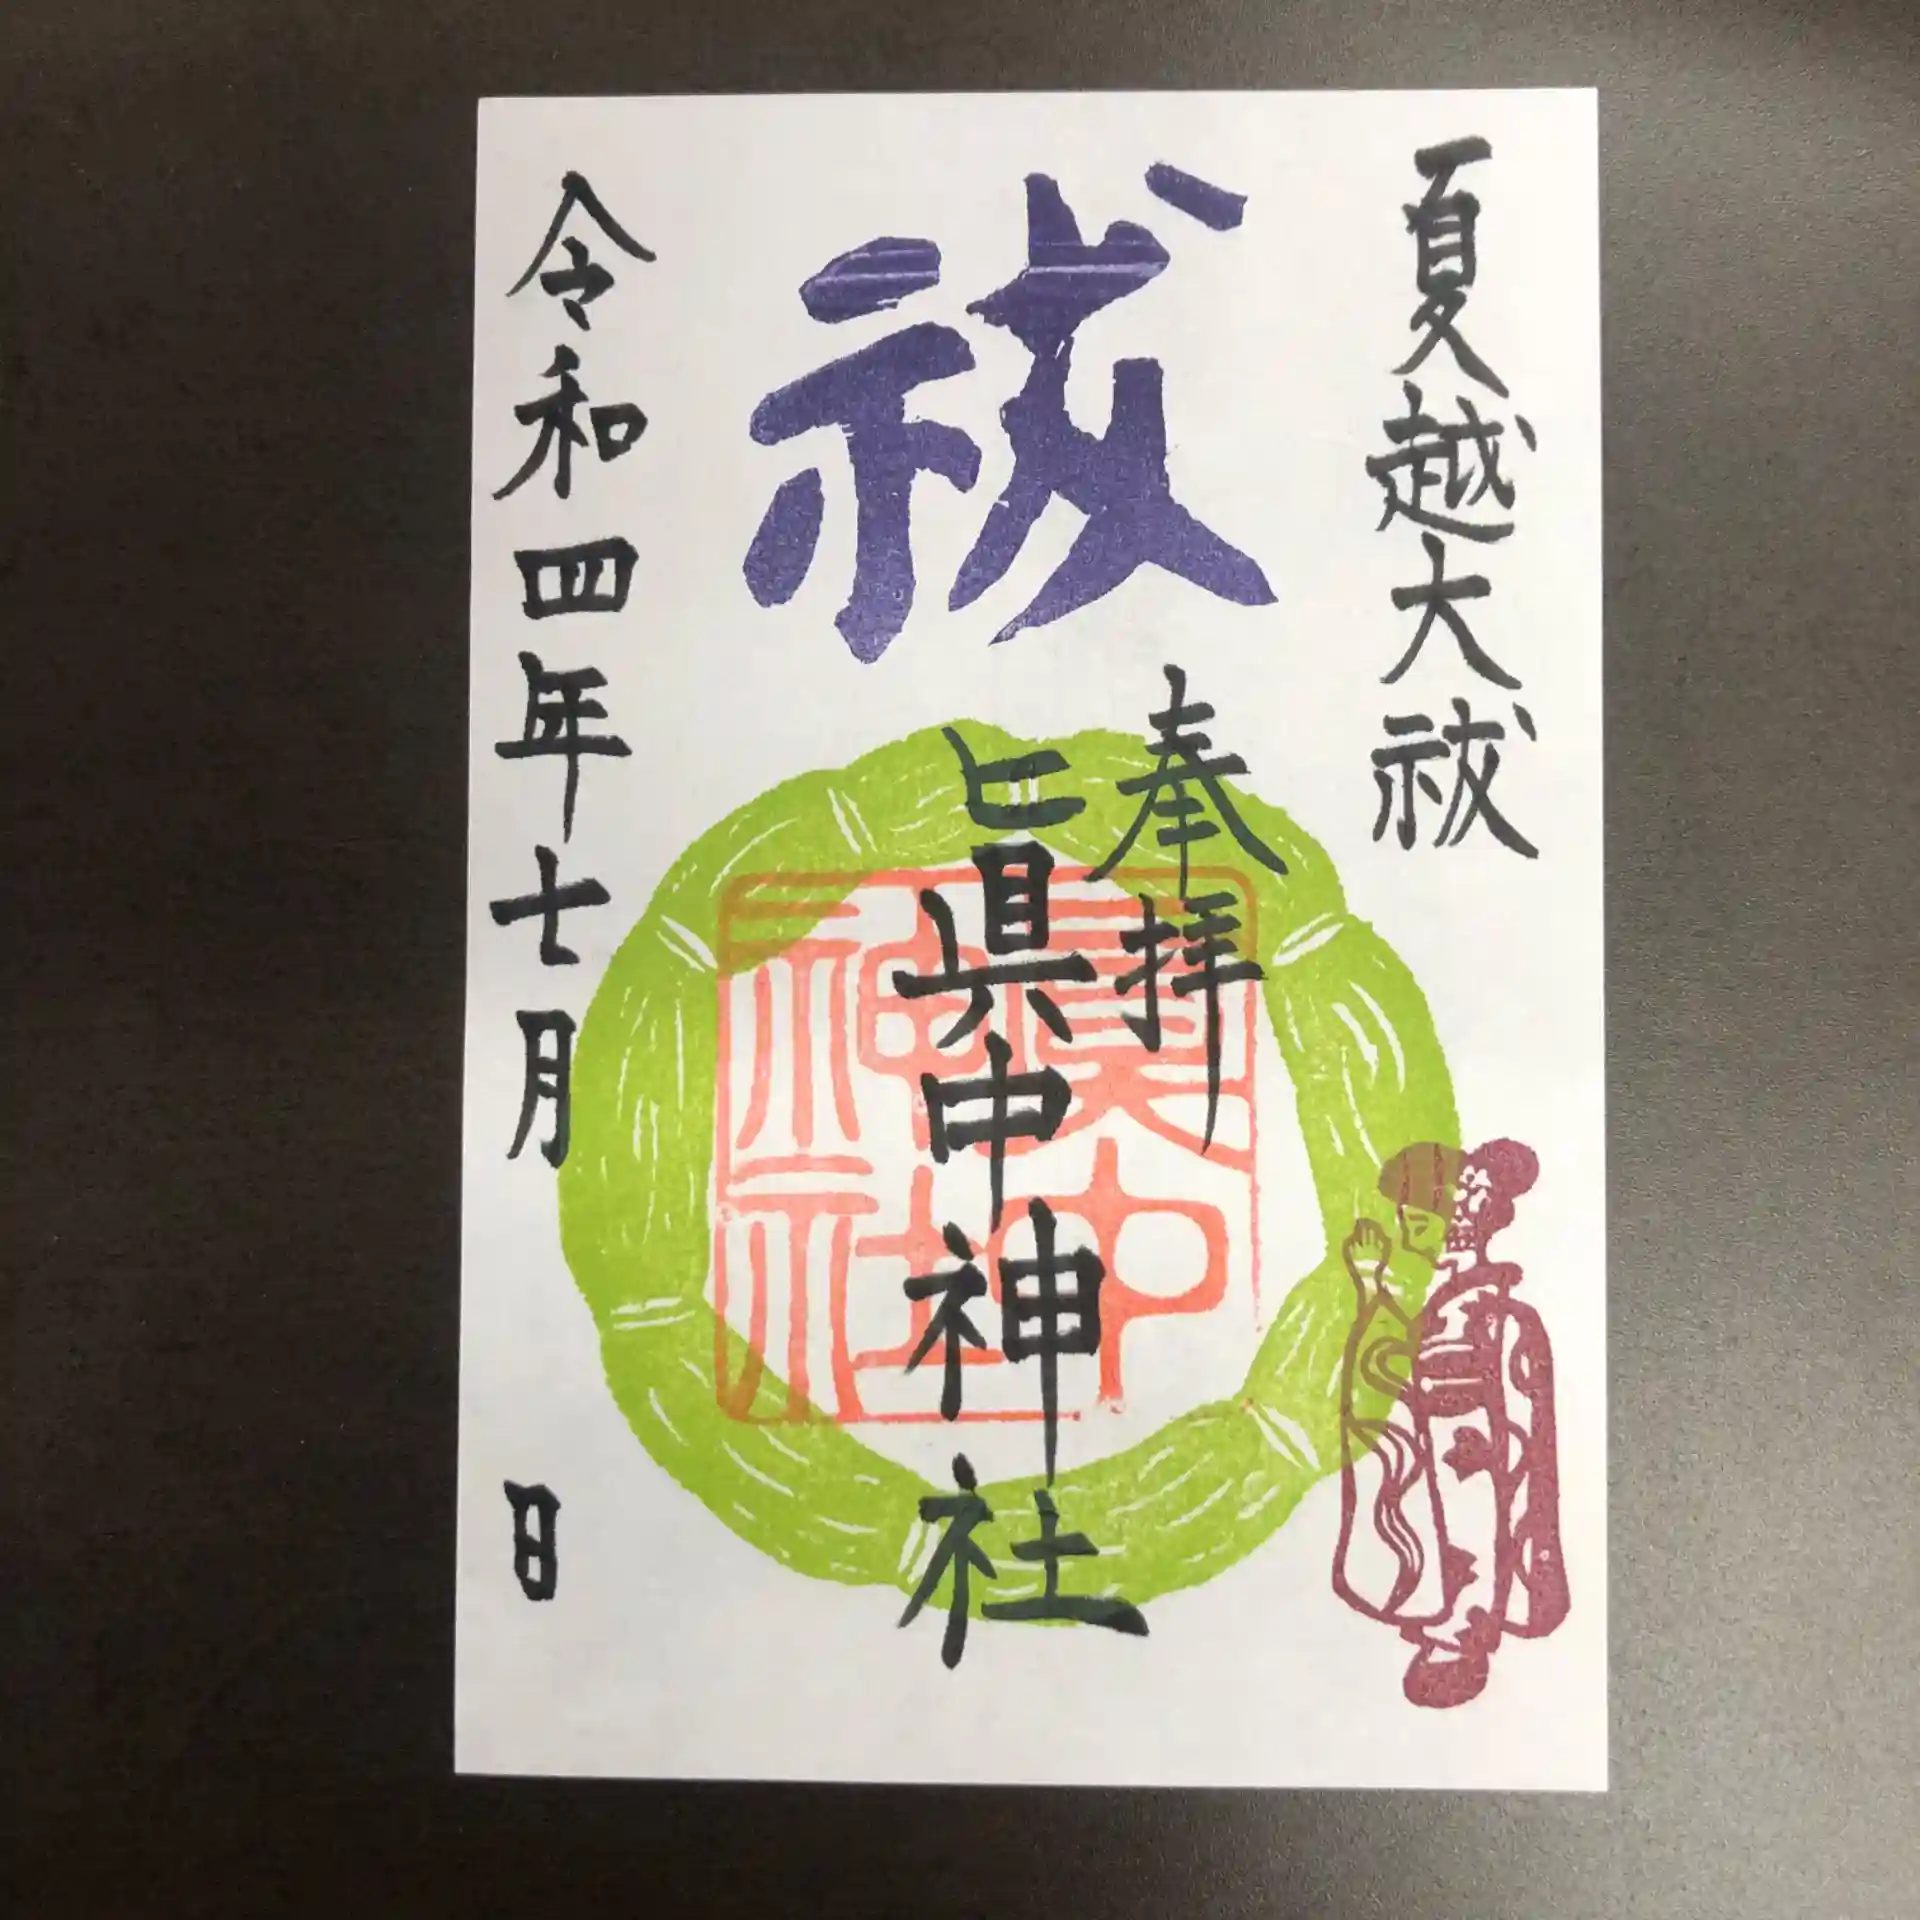 夏越大祓
祓
奉拝
眞中神社
眞中
神社
令和四年七月　日